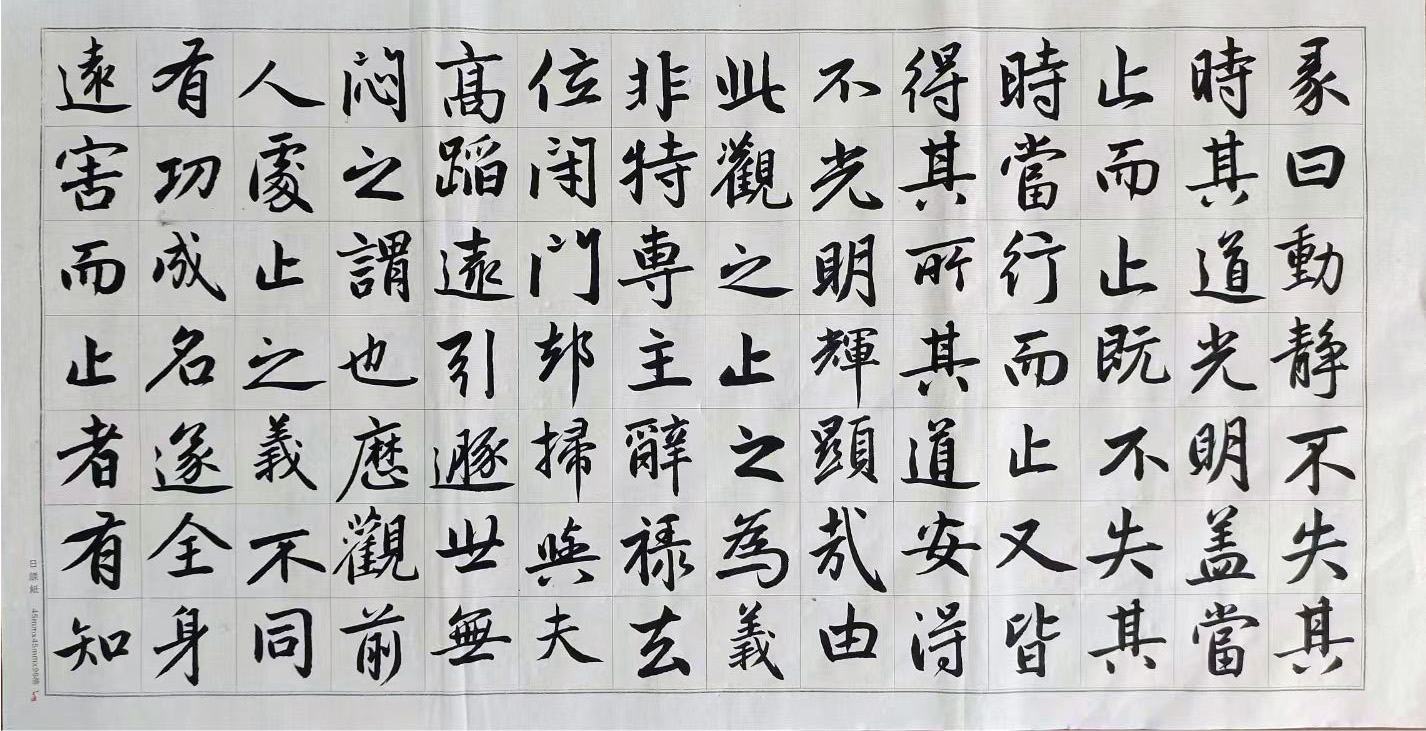 彖曰動静不失其
時其道光明盖當
止而止既不失其
時當行而止又皆
得其所其道安得
不光明輝顯哉由
此觀之止之為義
非特専主辭禄去
位閉門却掃與夫
髙蹈遠引遯世無
悶之謂也歴觀前
人處止之義不同
有功成名遂全身
遠害而止者有知
日課紙 45mm×45mm×98格